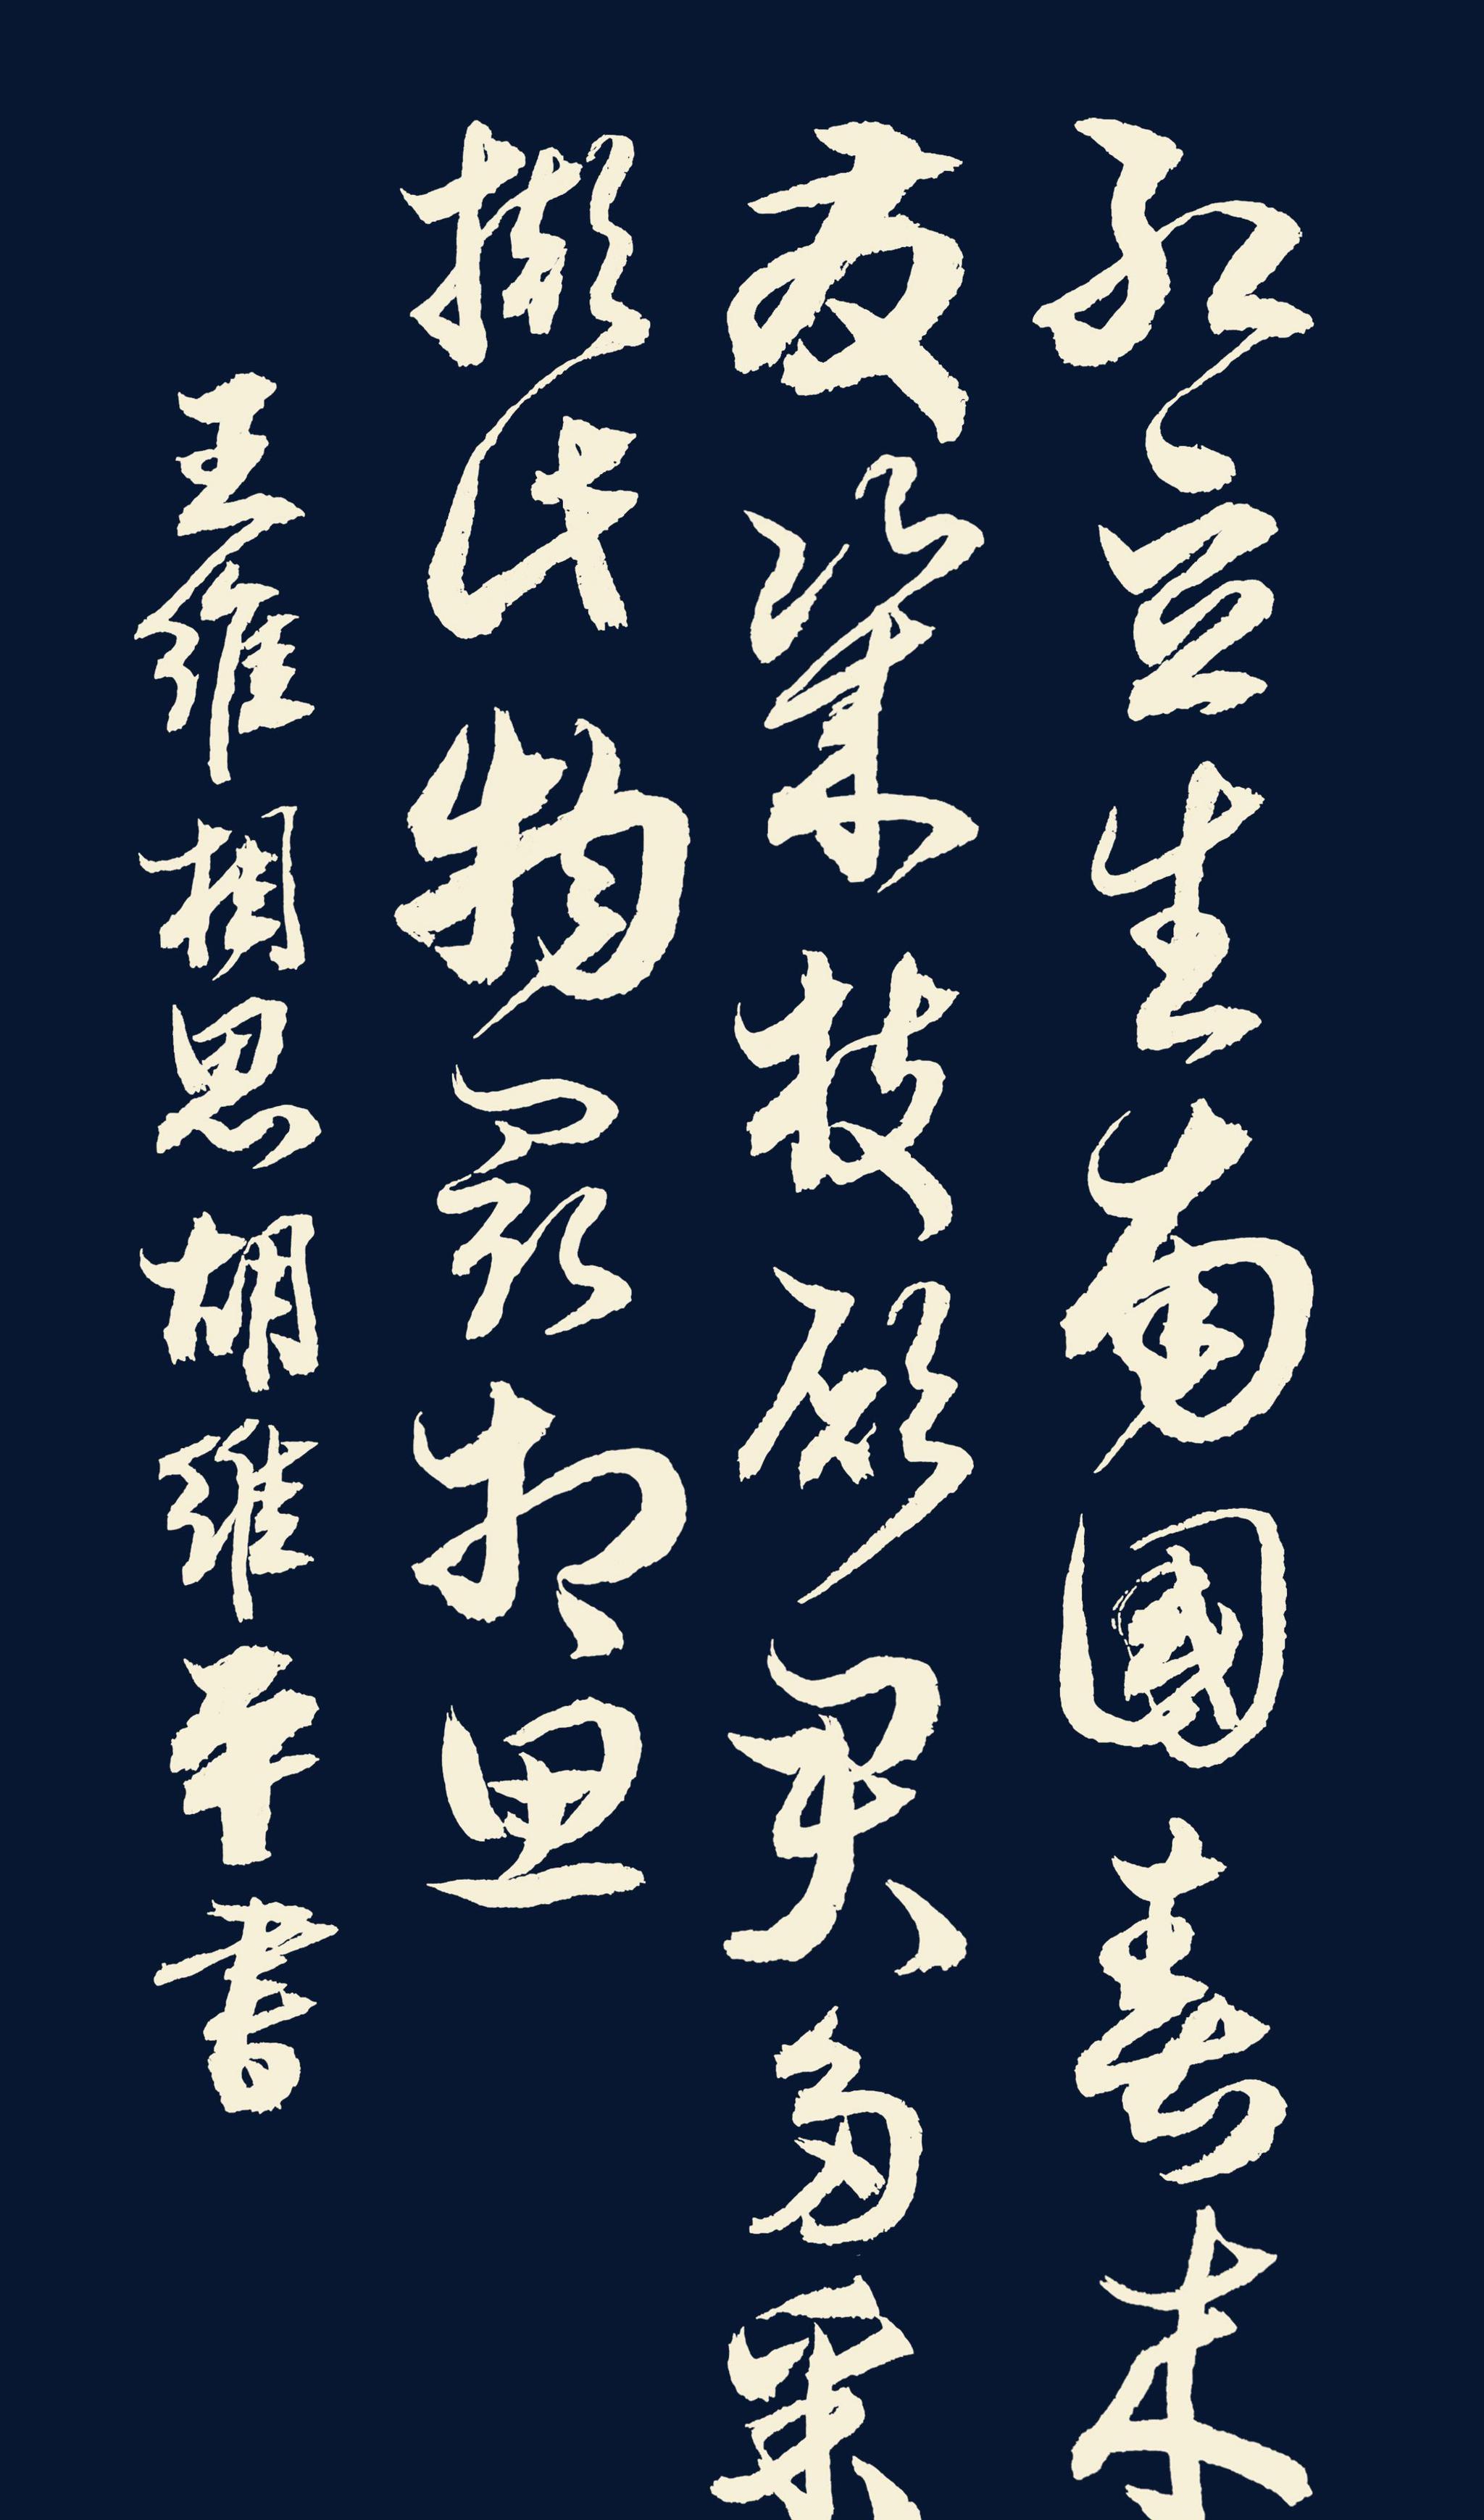 紅豆生南國春来
發幾枝願君多采
撷此物最相思
王維相思 書